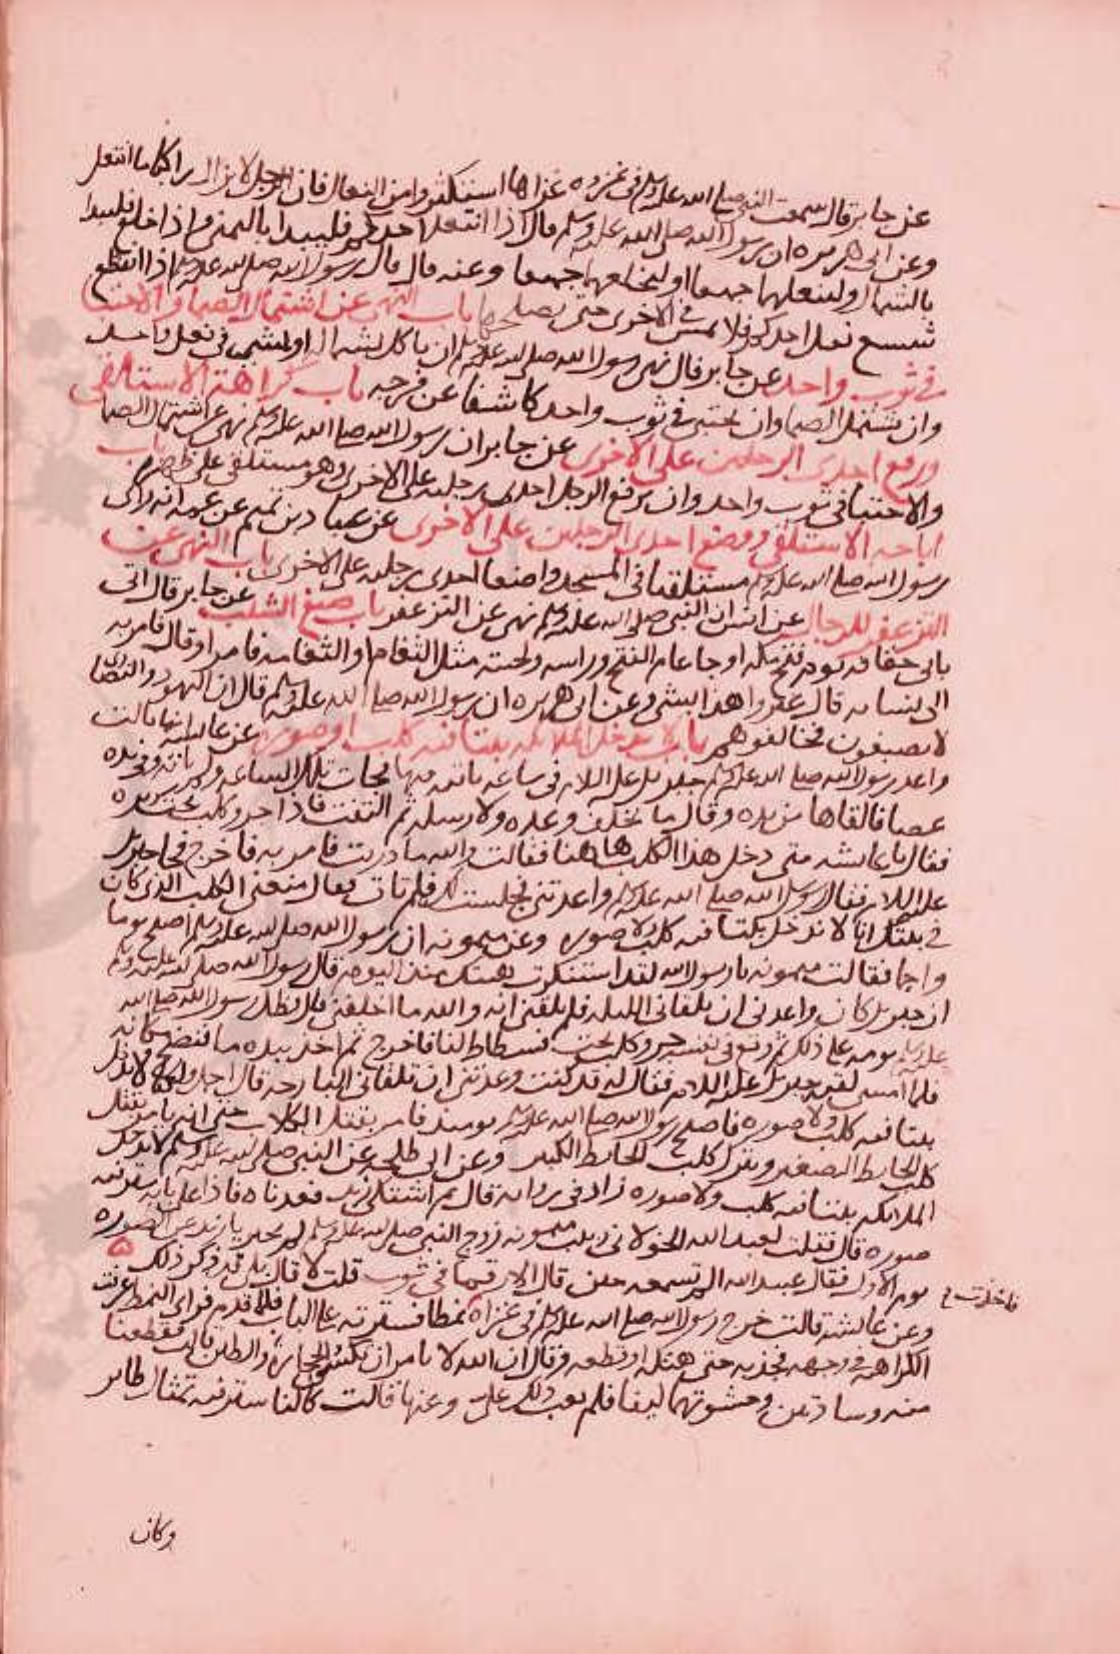 عن جابر قال سمعت النبي صلى الله عليه وسلم في غزوه غزاها استكثروا من النعال فان الرجل لا يزال راكبا ما انتعل
وعن ابي هريره ان رسول الله صلى الله عليه وسلم قال اذا انتعل احدكم فليبدا باليمنى واذا خلع فليبدا
بالشمال ولينعلهما جميعا او ليخلعهما جميعا وعنه قال قال رسول الله صلى الله عليه وسلم اذا انقطع
شسع نعل احدكم فلا يمش في الاخرى حتى يصلحها باب النهى عن اشتمال الصما والاحتبا
في ثوب واحد عن جابر قال نهى رسول الله صلى الله عليه وسلم ان ياكل بشماله او يمشي في نعل واحد
وان يشتمل الصما وان يحتبي في ثوب واحد كاشفا عن فرجه باب كراهة الاستلقى
ورفع احدى الرجلين على الاخرى عن جابر ان رسول الله صلى الله عليه وسلم نهى عن اشتمال الصما
والاحتبا في ثوب واحد وان يرفع الرجل احدى رجليه على الاخرى وهو مستلقي على ظهره باب
اباحه الاستلقى ووضع احدى الرجلين على الاخرى عن عباد بن تميم عن عمه انه راى
رسول الله صلى الله عليه وسلم مستلقيا في المسجد واضعا احدى رجليه على الاخرى باب النهى عن
التزعفر للرجال عن انس ان النبي صلى الله عليه وسلم نهى عن التزعفر باب صبغ الشيب عن جابر قال اتى
بابي قحافه يوم فتح مكه او جا عام الفتح وراسه ولحيته مثل الثغام او الثغامه فامر او قال فامر به
الى نسايه قال غيروا هذا بشي وعن ابي هريره ان رسول الله صلى الله عليه وسلم قال ان اليهود والنصارى
لا يصبغون فخالفوهم باب لا تدخل الملايكه بيتا فيه كلب او صوره عن عايشه انها قالت
واعد رسول الله صلى الله عليه وسلم جبريل عليه السلام في ساعه ياتيه فيها فجات تلك الساعه ولم ياته وفي يده
عصا فالقاها من يده وقال ما يخلف وعده ولا رسله ثم التفت فاذا جرو كلب تحت سريره
فقال يا عايشه متى دخل هذا الكلب هاهنا فقالت والله ما دريت فامر به فاخرج فجا جبريل
عليه السلام فقال رسول الله صلى الله عليه وسلم واعدتني فجلست لك فلم تات فقال منعني الكلب الذي كان
في بيتك انا لا ندخل بيتا فيه كلب ولا صوره وعن ميمونه ان رسول الله صلى الله عليه وسلم اصبح يوما
واجما فقالت ميمونه يا رسول الله لقد استنكرت هيتك منذ اليوم قال رسول الله صلى الله عليه وسلم
ان جبريل كان واعدني ان يلقاني الليله فلم يلقني انه والله ما اخلفني قال فظل رسول الله صلى الله
عليه وسلم يومه على ذلك ثم وقع في نفسه جرو كلب تحت فسطاط لنا فاخرج ثم اخذ بيده ما فنضح مكانه
فلما امسى لقيه جبريل عليه السلام فقال له قد كنت وعدتني ان تلقاني البارحه قال اجل ولكنا لا ندخل
بيتا فيه كلب ولا صوره فاصبح رسول الله صلى الله عليه وسلم يومئذ فامر بقتل الكلاب حتى انه يامر بقتل
كلب الحايط الصغير ويترك كلب الحايط الكبير وعن ابي طلحه عن النبي صلى الله عليه وسلم لا تدخل
الملايكه بيتا فيه كلب ولا صوره زاد في روايه قال ثم اشتكى زيد فعدناه فاذا على بابه ستر فيه
صوره قال فقلت لعبيد الله الخولاني ربيب ميمونه زوج النبي صلى الله عليه وسلم الم يخبرنا زيد عن الصوره
يوم الاول فقال عبيد الله الم تسمعه حين قال الا رقما في ثوب قلت لا قال بلى قد ذكر ذلك
وعن عايشه قالت خرج رسول الله صلى الله عليه وسلم في غزاه نمطا فسترته على الباب فلما قدم فراى النمط عرفت
فاخذت
الكراهه في وجهه فجذبه حتى هتكه او قطعه وقال ان الله لا يامر ان نكسو الحجاره والطين قالت فقطعنا
منه وسادتين وحشوتهما ليفا فلم يعب ذلك علي وعنها قالت كان لنا ستر فيه تمثال طاير
وكان